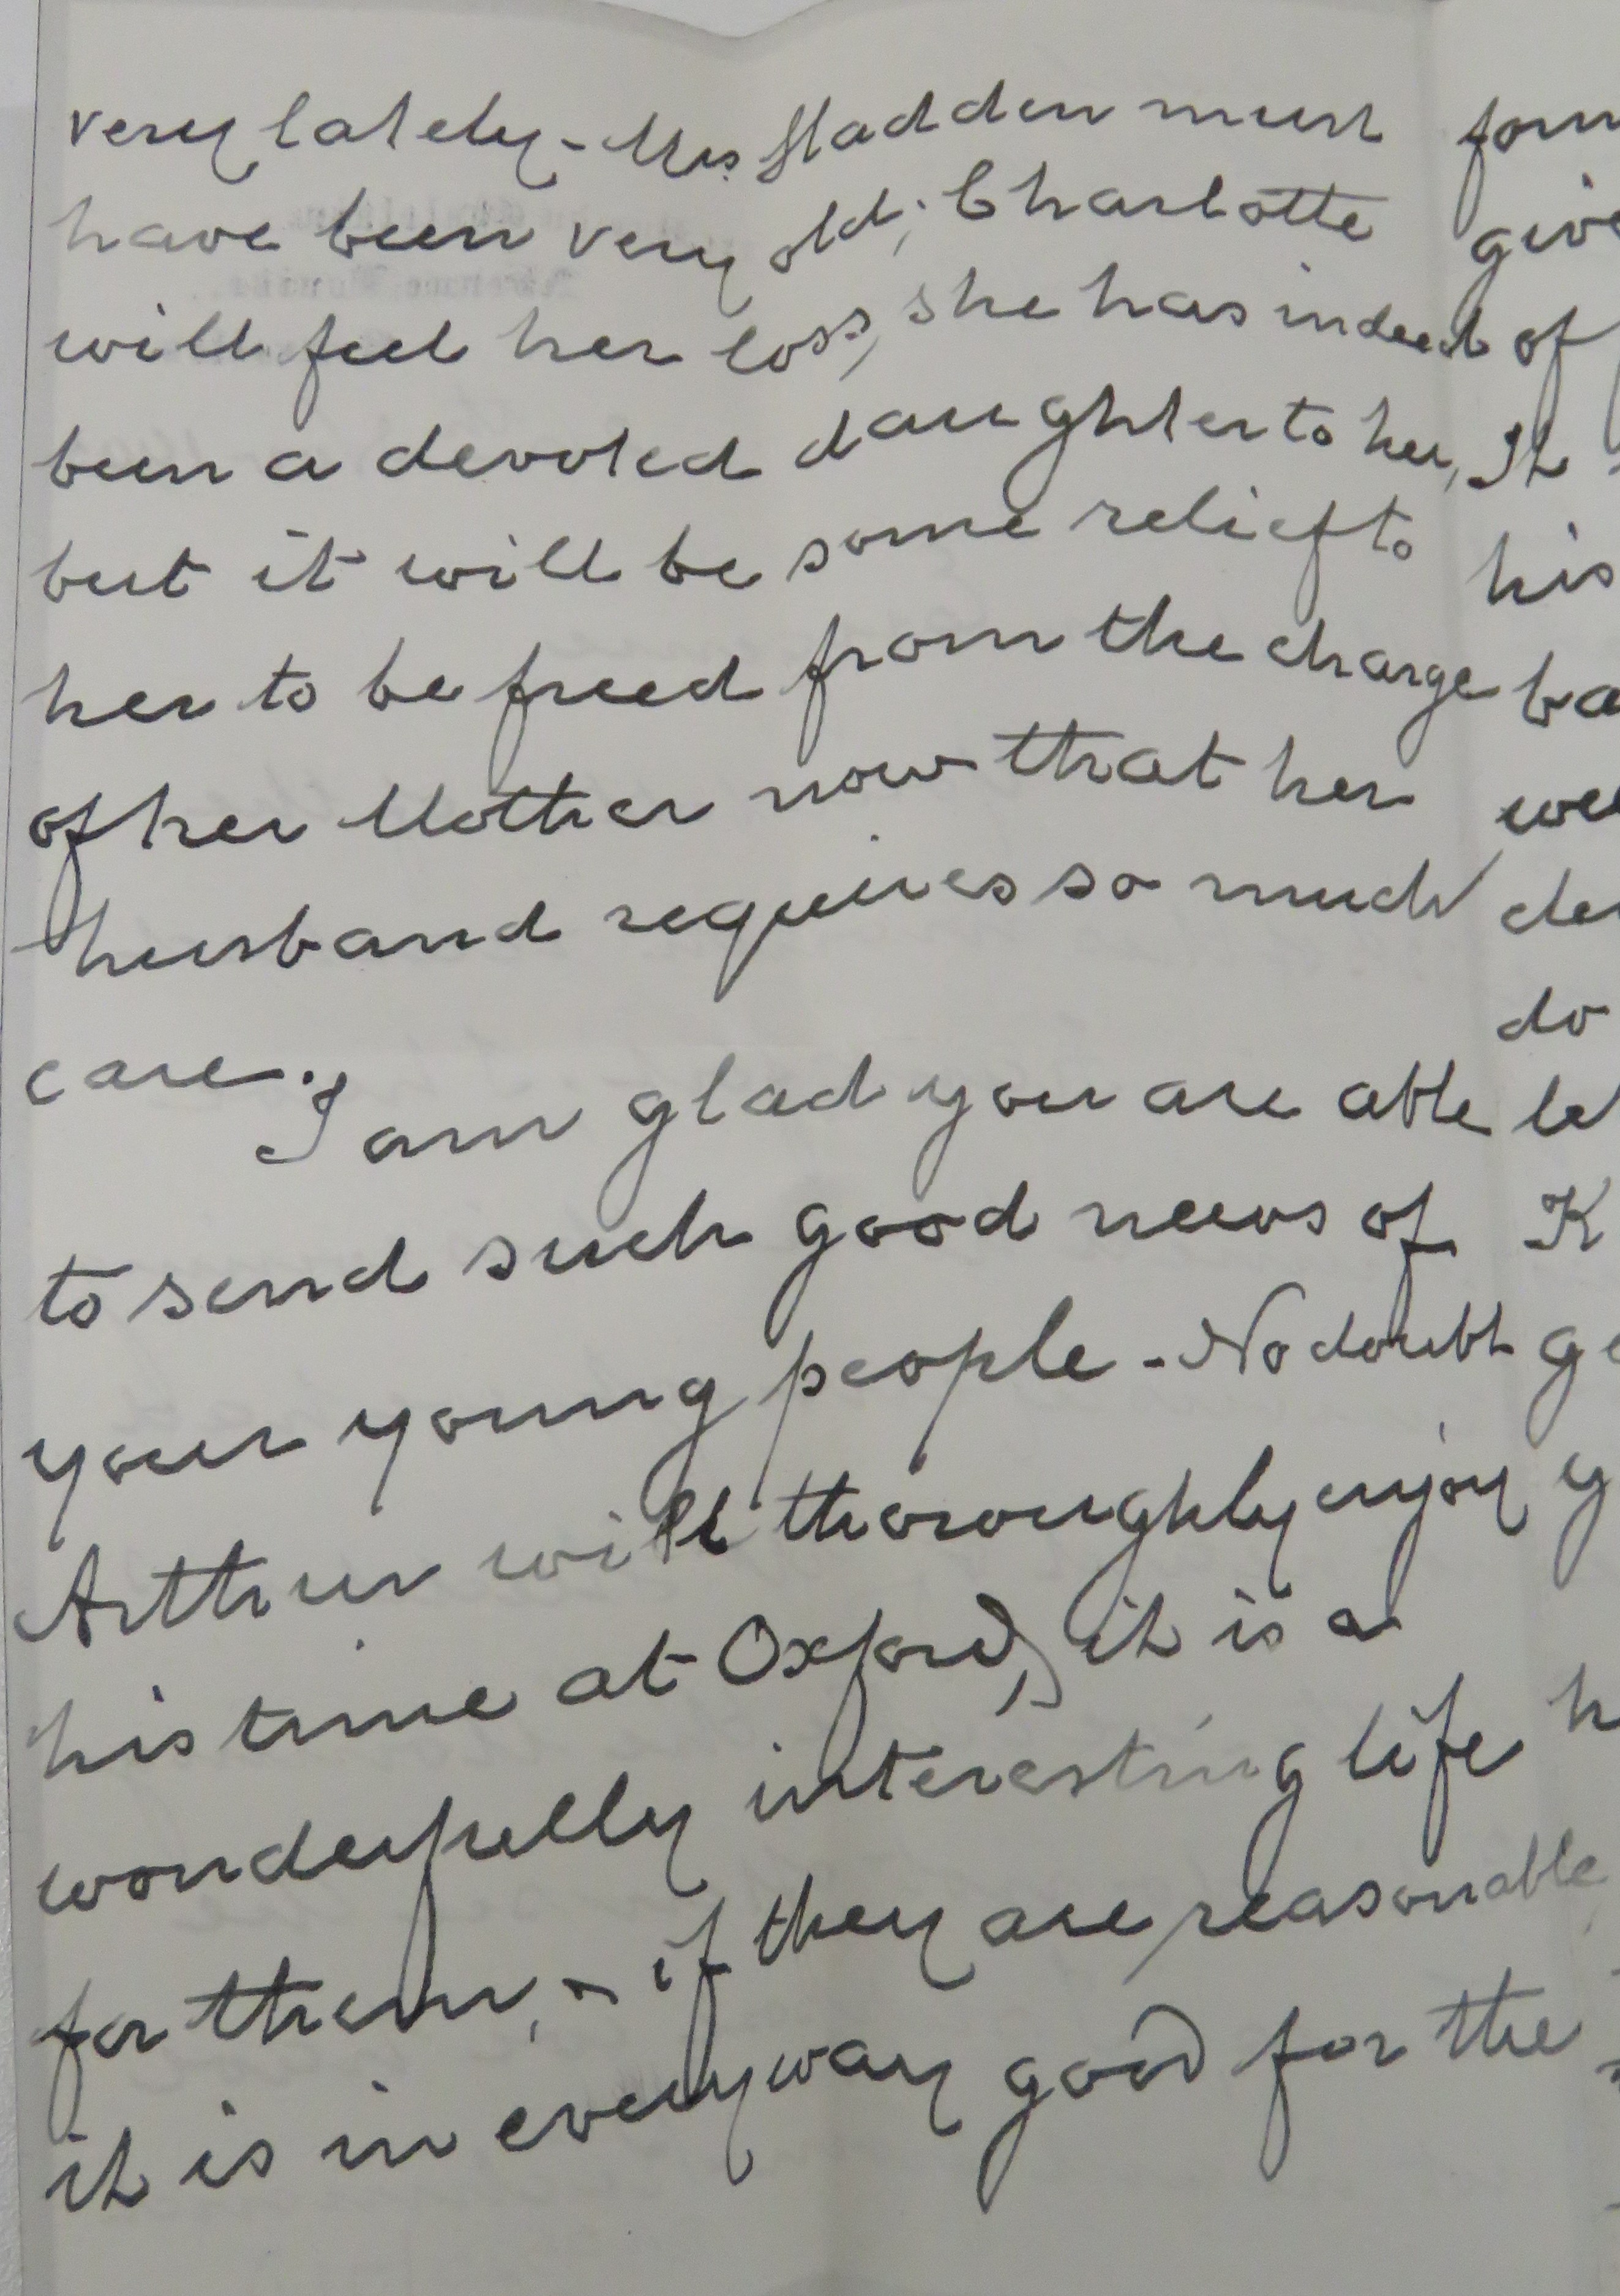 very lately - Mrs. Hadden must
have been very old; Charlotte
will feel her loss, she has indeed
been a devoted daughter to her,
but it will be some relief to
her to be freed from the charge
of her Mother now that her
husband requires so much
care.
I am glad you are able
to send such good news of
your young people - No doubt
Arthur will thoroughly enjoy
his time at Oxford, it is a
wonderfully interesting life
for them, - if they are reasonable,
it is in every way good for the
give
of
It
his
do